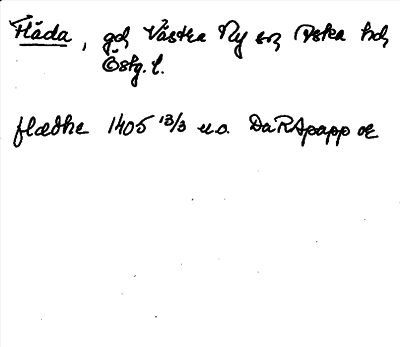 Fläda, gd, Västra Ny sn, Aska hd,
Östg. l.
flædhe 1405 13/3 u.o. DaRApapp or